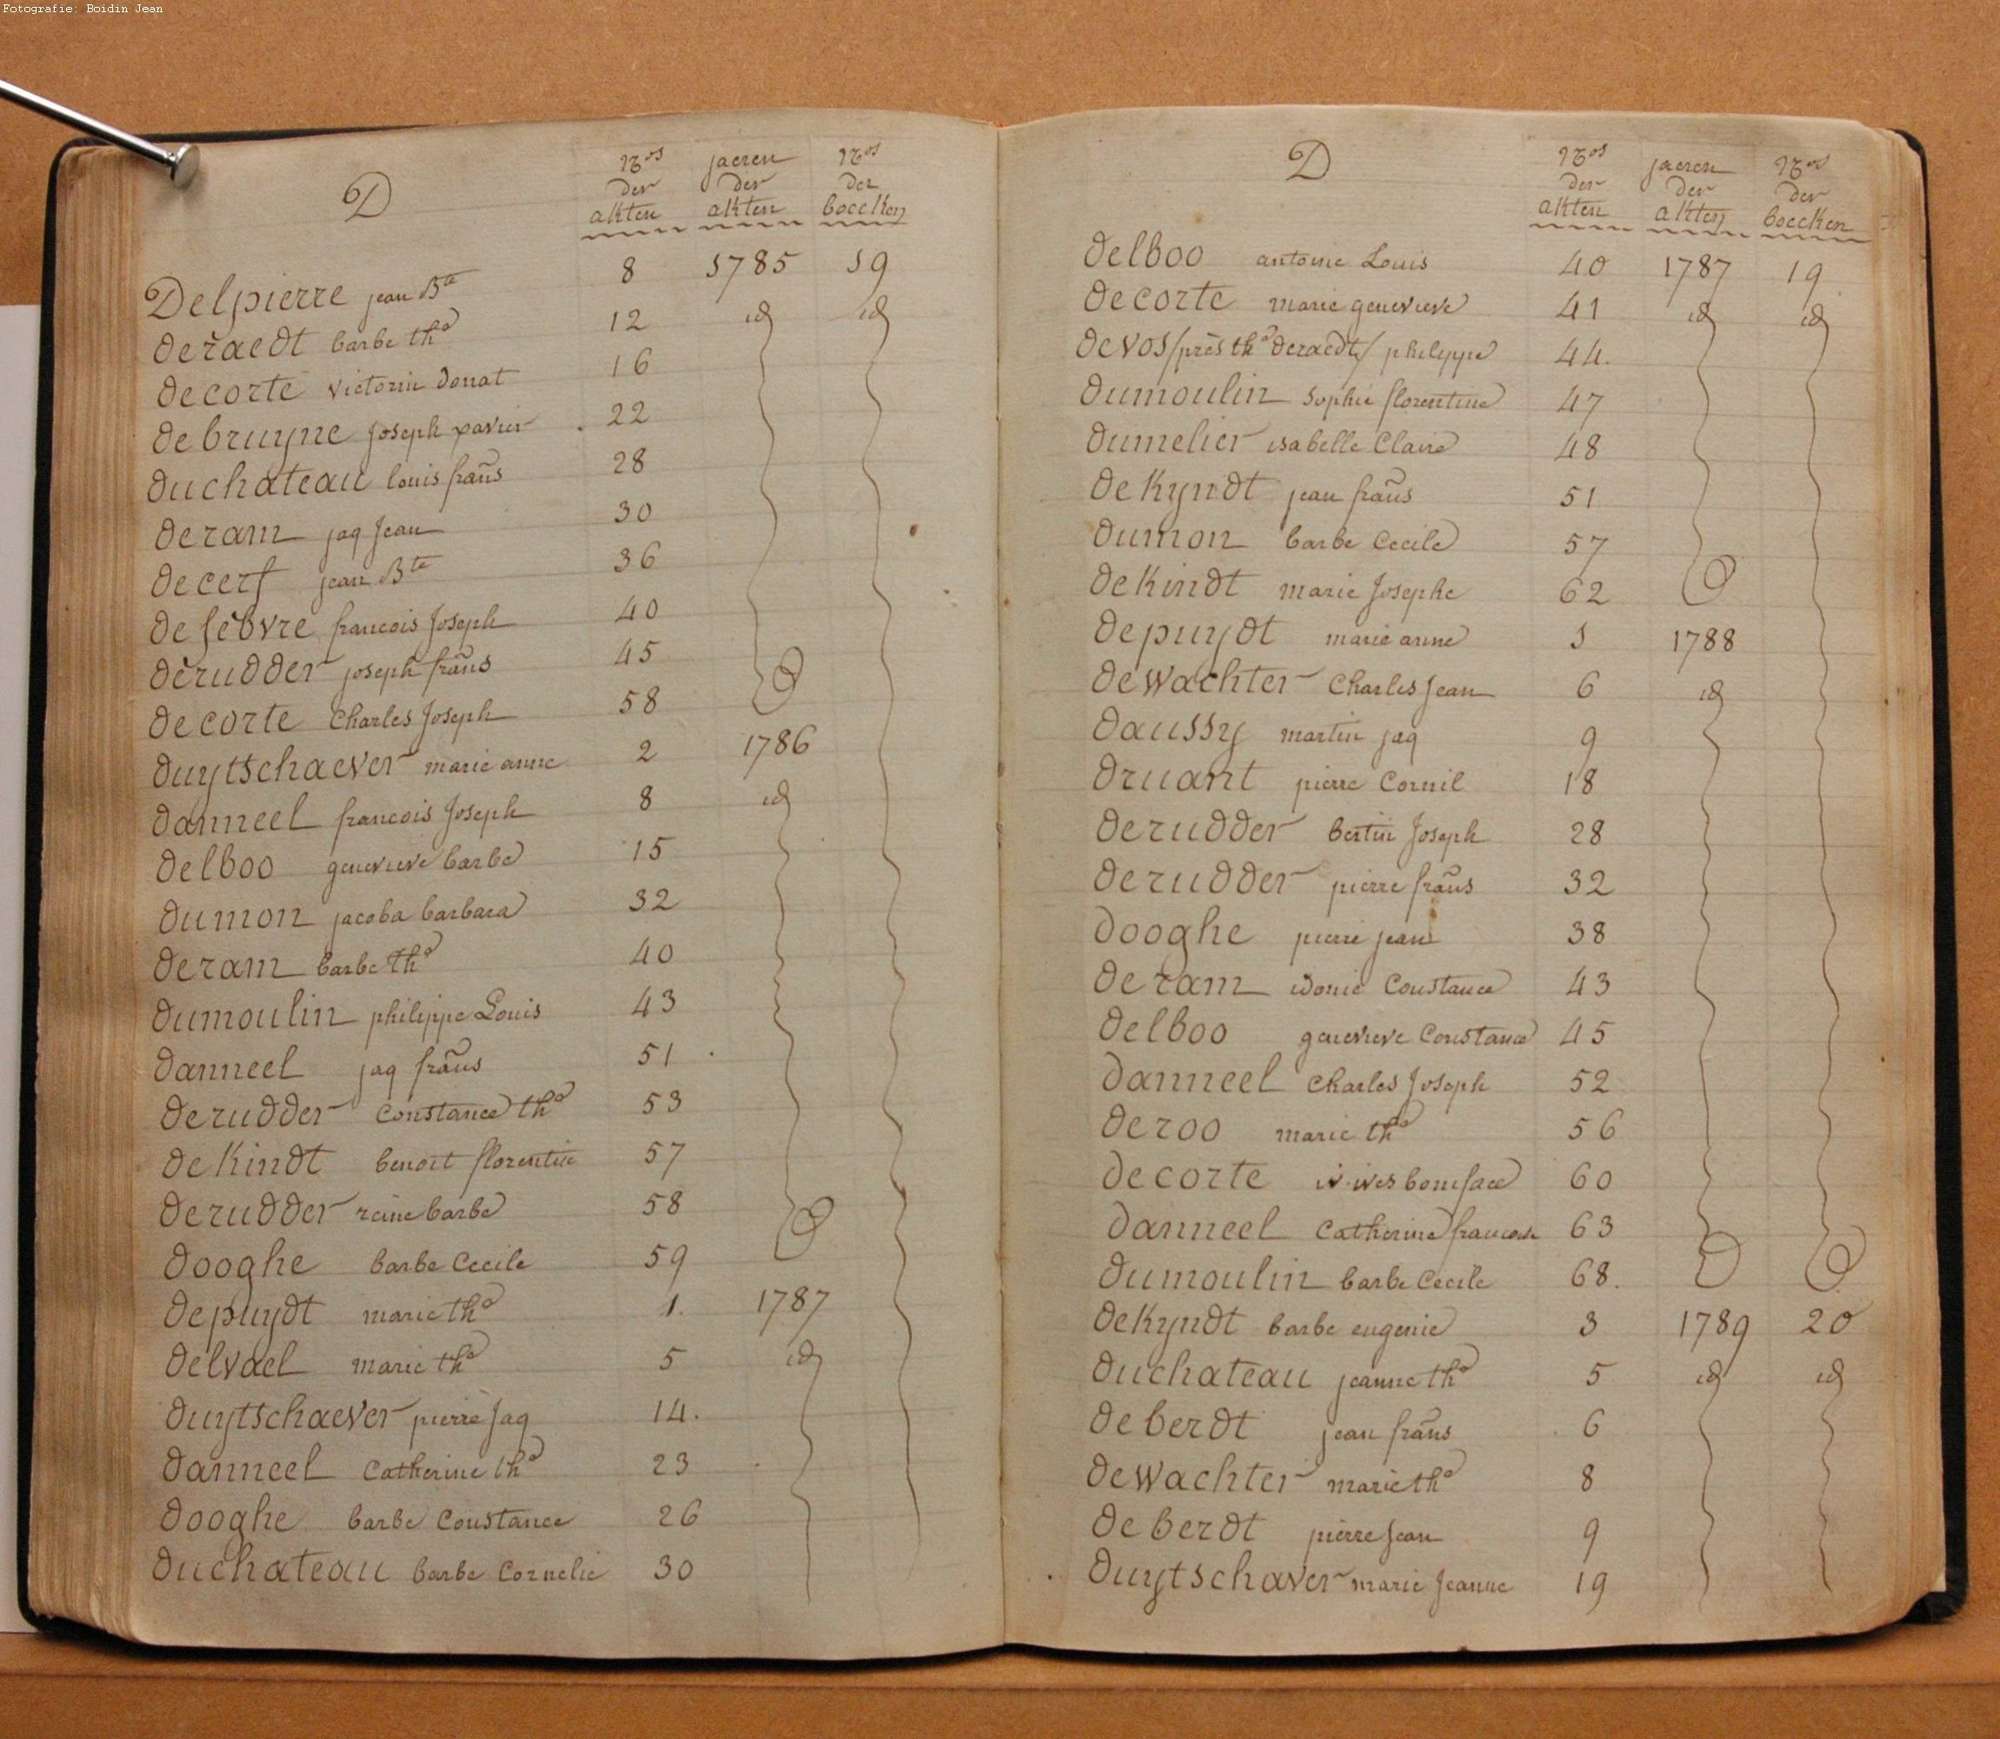 Fotografie: Boidin Jean
D
Nos der akten
jaeren der akten
Nos der boecken
Delpierre jean Bte 8 1785 19
deraedt barbe tha 12 id id
decorte victorin donat 16
debruyne joseph xavier 22
duchateau louis frans 28
deram jaq jean 30
decerf jean Bte 36
defebvre francois joseph 40
derudder joseph frans 45
decorte charles joseph 58
duytschaever marie anne 2 1786
danneel francois joseph 8 id
delboo genevieve barbe 15
dumon jacoba barbara 32
deram barbe tha 40
dumoulin philippe Louis 43
danneel jaq frans 51
derudder constance tha 53
dekindt benoit florentin 57
derudder reine barbe 58
dooghe barbe cecile 59
depuydt marie tha 1. 1787
delvael marie tha 5 id
duytschaever pierre jaq 14.
danneel catherine tha 23
dooghe barbe constance 26
duchateau barbe cornelie 30
D
Nos der akten
jaeren der akten
Nos der boecken
delboo antoine Louis 40 1787 19
decorte marie genevieve 41 id id
devos/près tha deraedt/ philippe 44.
dumoulin sophie florentine 47
dumelier isabelle claire 48
dekyndt jean frans 51
dumon barbe cecile 57
dekindt marie josephe 62
depuydt marie anne 1 1788
dewachter charles jean 6 id
daussy martin jaq 9
druant pierre cornil 18
derudder bertin joseph 28
derudder pierre frans 32
dooghe pierre jean 38
deram idonie constance 43
delboo genevieve constance 45
danneel charles joseph 52
deroo marie tha 56
decorte ives boniface 60
danneel catherine francoise 63
dumoulin barbe cecile 68.
dekyndt barbe eugenie 3 1789 20
duchateau jeanne tha 5 id id
deberdt jean frans 6
dewachter marie tha 8
deberdt pierre jean 9
duytschaver marie jeanne 19